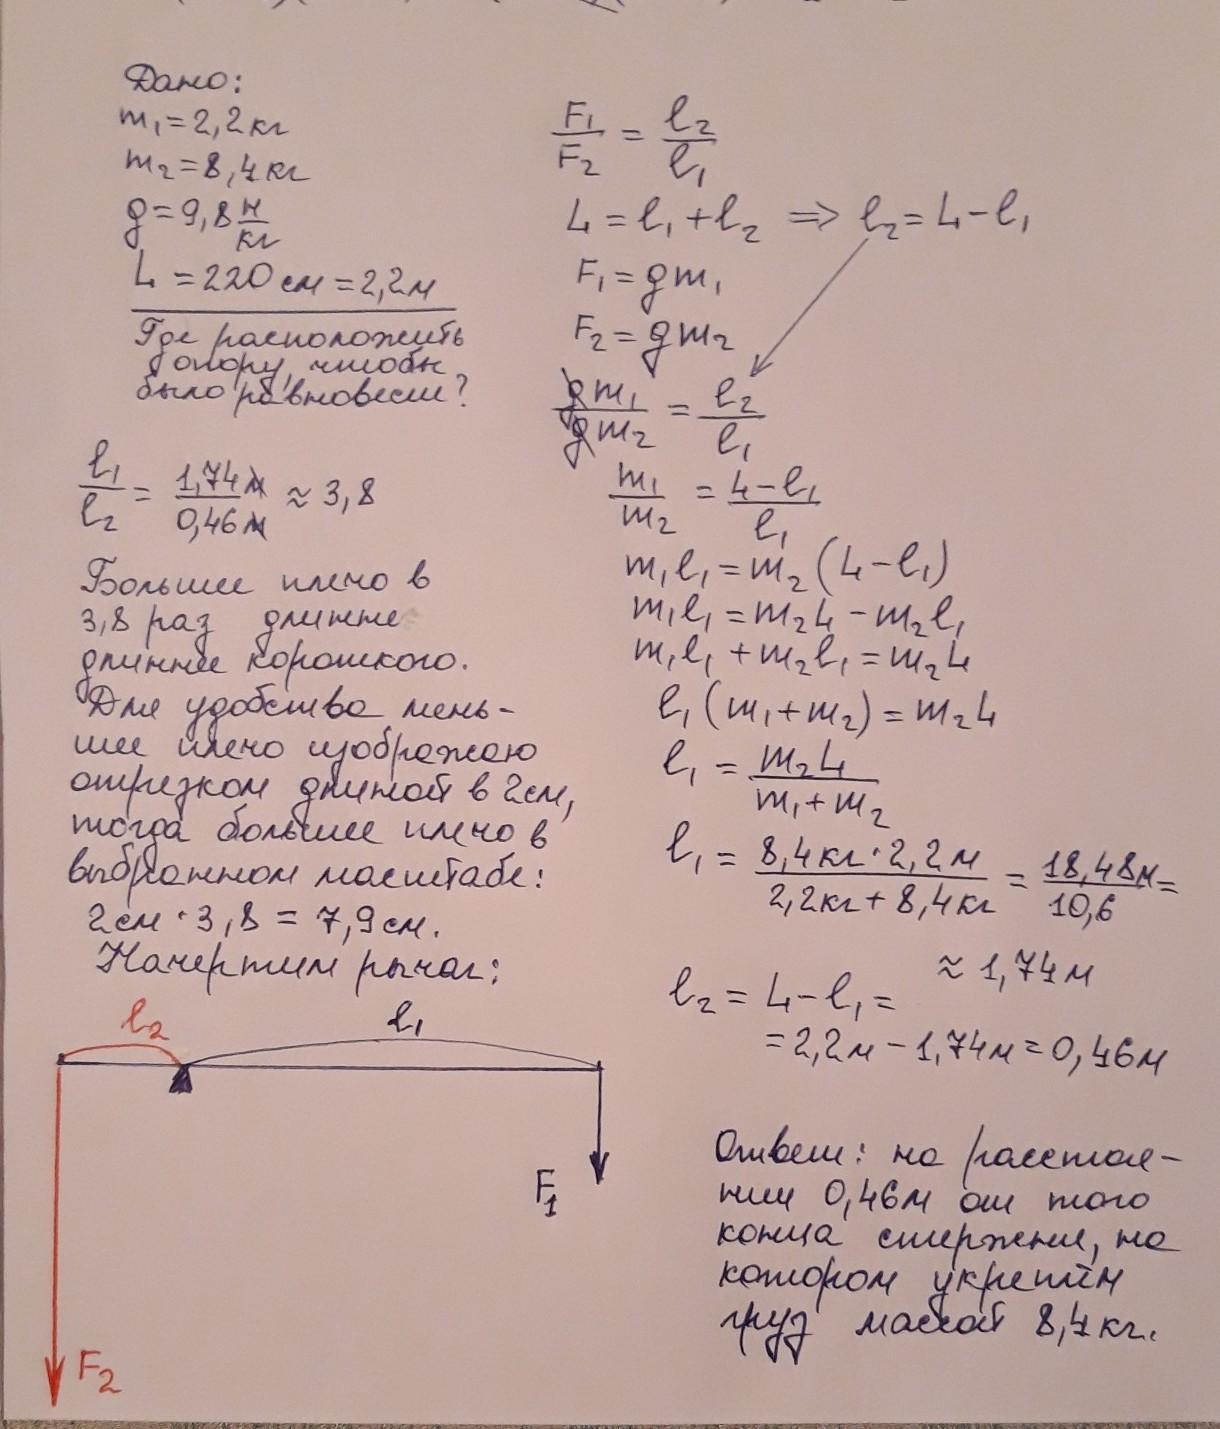 Дано:
m₁=2,2кг
m₂=8,4кг
g=9,8 н/кг
L=220см=2,2м
Где расположить
опору, чтобы
было равновесие?
l₁/l₂ = 1,74м/0,46м ≈ 3,8
Большее плечо в
3,8 раз длинне
длиннее короткого.
Для удобства мень-
шее плечо изображаю
отрезком длиной в 2см,
тогда большее плечо в
выбранном масштабе:
2см·3,8=7,9см.
Начертим рычаг:
l₂ l₁
F₁
F₂
F₁/F₂ = l₂/l₁
L=l₁+l₂ ⇒ l₂=L-l₁
F₁=gm₁
F₂=gm₂
gm₁/gm₂ = l₂/l₁
m₁/m₂ = L-l₁/l₁
m₁l₁=m₂(L-l₁)
m₁l₁=m₂L-m₂l₁
m₁l₁+m₂l₁=m₂L
l₁(m₁+m₂)=m₂L
l₁ = m₂L/m₁+m₂
l₁ = 8,4кг·2,2м/2,2кг+8,4кг = 18,48м/10,6 =
≈ 1,74м
l₂ = L-l₁=
=2,2м-1,74м=0,46м
Ответ: на расстоя-
нии 0,46м от того
конца стержня, на
котором укреплён
груз массой 8,4кг.